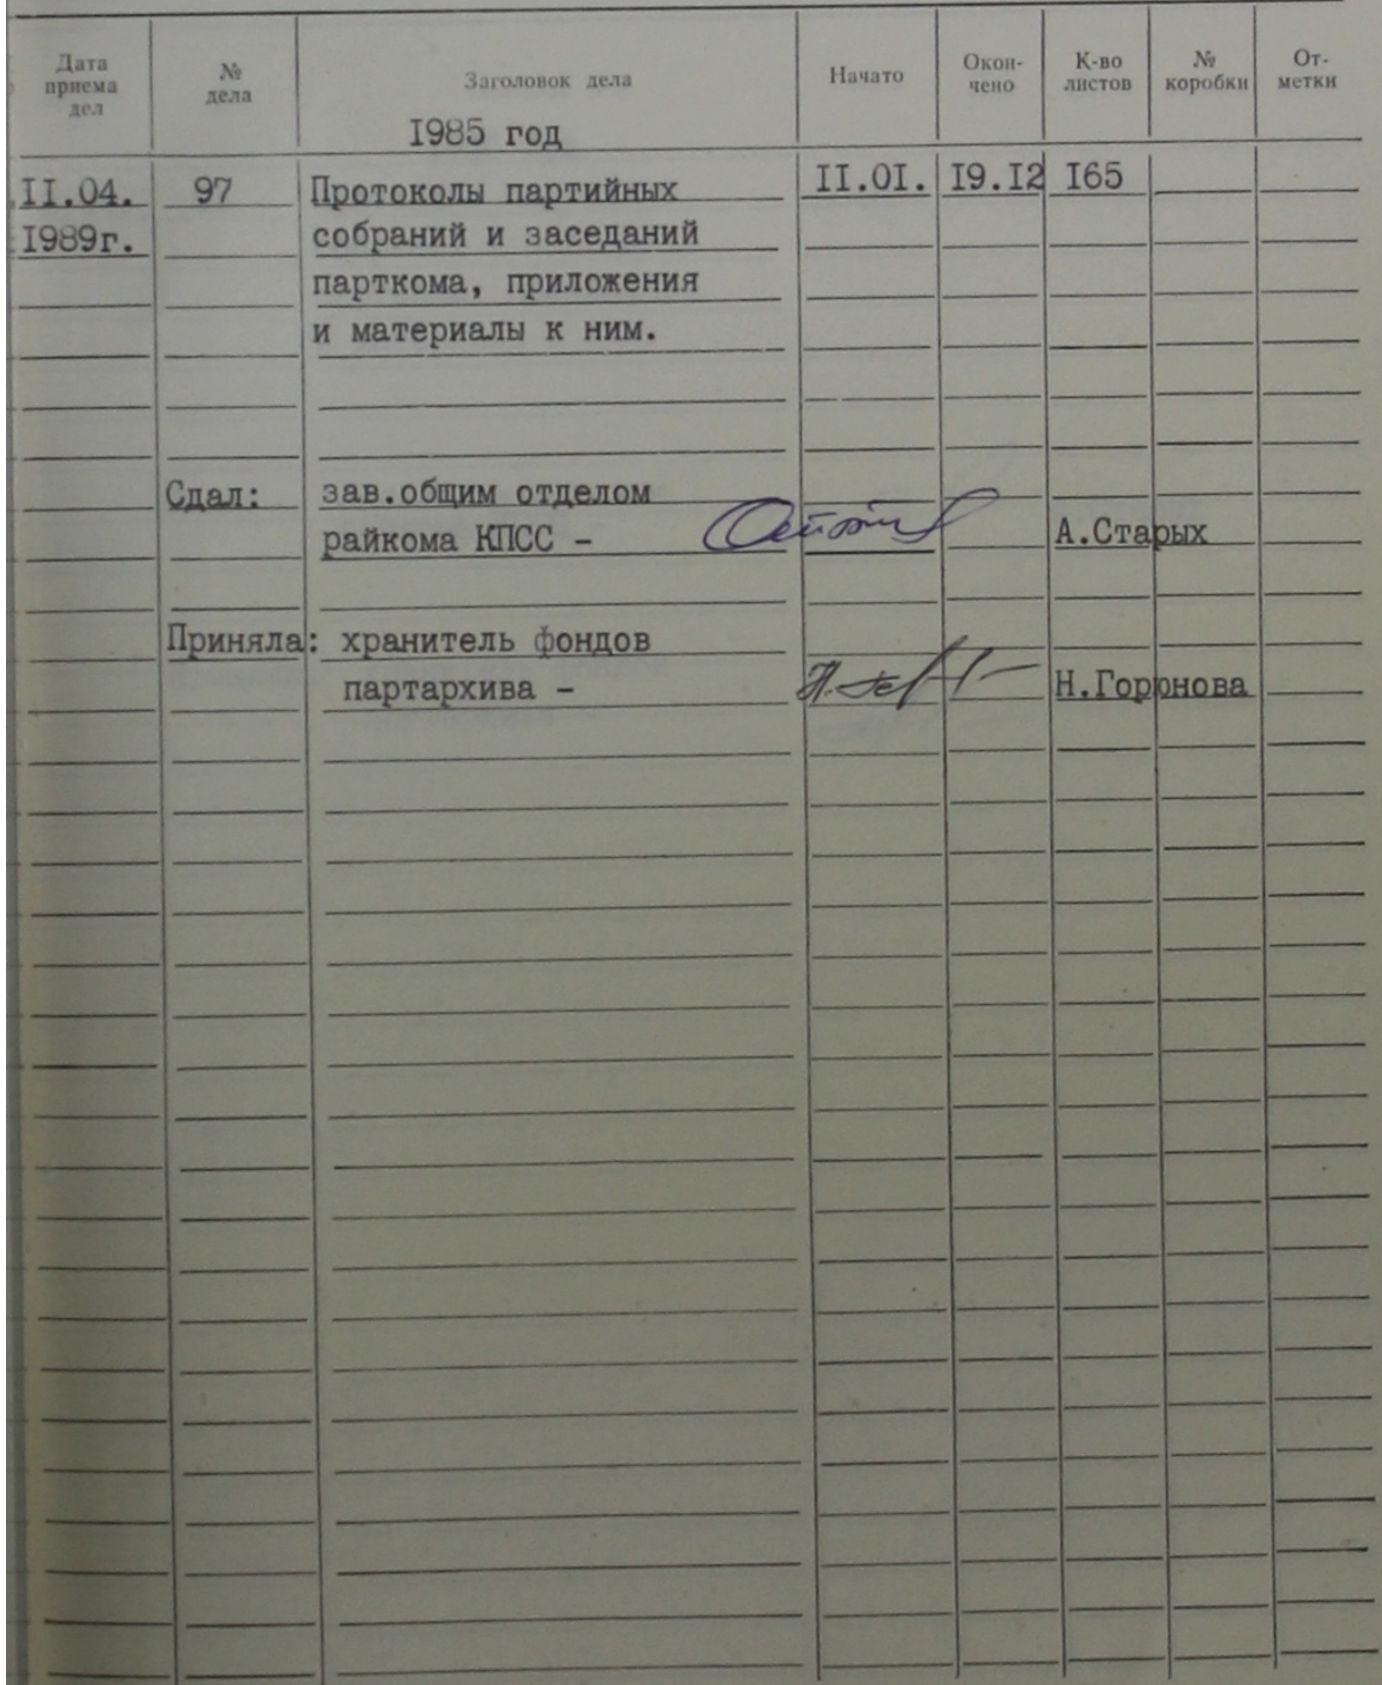 Дата приема дел
№ дела
Заголовок дела
Начато
Окон-чено
К-во листов
№ коробки
От-метки
I985 год
II.04. 97 Протоколы партийных II.OI. I9.I2 I65
I989г. собраний и заседаний
парткома, приложения
и материалы к ним.
Сдал: зав.общим отделом
райкома КПСС - А.Старых
Приняла: хранитель фондов
партархива - Н.Горюнова